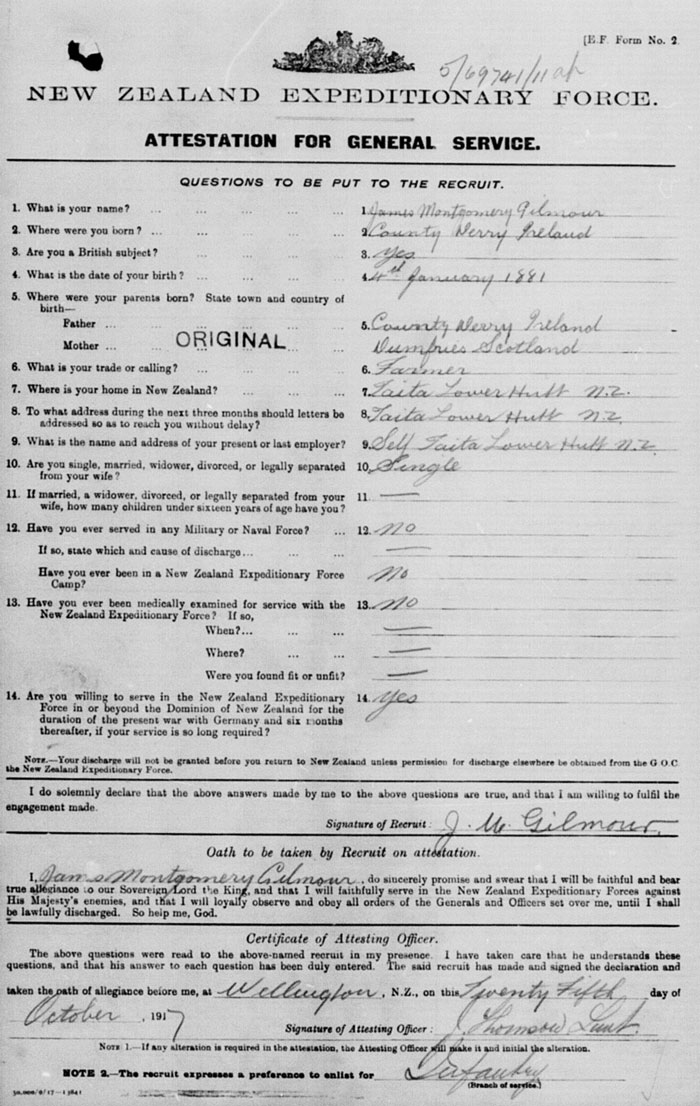 [E.F. Form No. 2.
5/69741/11
NEW ZEALAND EXPEDITIONARY FORCE.
ATTESTATION FOR GENERAL SERVICE.
QUESTIONS TO BE PUT TO THE RECRUIT.
1. What is your name? ... ... ... ... 1. James Montgomery Gilmour
2. Where were you born? ... ... ... ... 2. County Derry Ireland
3. Are you a British subject? ... ... ... 3. Yes
4. What is the date of your birth? ... ... ... 4. 4th January 1881
5. Where were your parents born? State town and country of
birth—
Father ... ... ... ... ... 5. County Derry Ireland
Mother ... ORIGINAL ... Dumfries Scotland
6. What is your trade or calling? ... ... ... 6. Farmer
7. Where is your home in New Zealand? ... ... 7. Taita Lower Hutt N.Z.
8. To what address during the next three months should letters be
addressed so as to reach you without delay? 8. Taita Lower Hutt N.Z.
9. What is the name and address of your present or last employer? 9. Self Taita Lower Hutt N.Z.
10. Are you single, married, widower, divorced, or legally separated
from your wife? 10. Single
11. If married, a widower, divorced, or legally separated from your
wife, how many children under sixteen years of age have you? 11. —
12. Have you ever served in any Military or Naval Force? ... 12. no
If so, state which and cause of discharge... ... ... —
Have you ever been in a New Zealand Expeditionary Force
Camp? no
13. Have you ever been medically examined for service with the
New Zealand Expeditionary Force? If so, 13. no
When?... ... ... —
Where? ... ... —
Were you found fit or unfit? —
14. Are you willing to serve in the New Zealand Expeditionary
Force in or beyond the Dominion of New Zealand for the
duration of the present war with Germany and six months
thereafter, if your service is so long required? 14. Yes
NOTE.—Your discharge will not be granted before you return to New Zealand unless permission for discharge elsewhere be obtained from the G O.C.
the New Zealand Expeditionary Force.
I do solemnly declare that the above answers made by me to the above questions are true, and that I am willing to fulfil the
engagement made.
Signature of Recruit: J. M. Gilmour.
Oath to be taken by Recruit on attestation.
I, James Montgomery Gilmour, do sincerely promise and swear that I will be faithful and bear
true allegiance to our Sovereign Lord the King, and that I will faithfully serve in the New Zealand Expeditionary Forces against
His Majesty's enemies, and that I will loyally observe and obey all orders of the Generals and Officers set over me, until I shall
be lawfully discharged. So help me, God.
Certificate of Attesting Officer.
The above questions were read to the above-named recruit in my presence. I have taken care that he understands these
questions, and that his answer to each question has been duly entered. The said recruit has made and signed the declaration and
taken the oath of allegiance before me, at Wellington, N.Z., on this Twenty Fifth day of
October, 1917 Signature of Attesting Officer: J. Thomson Lieut
NOTE 1.—If any alteration is required in the attestation, the Attesting Officer will make it and initial the alteration.
NOTE 2.—The recruit expresses a preference to enlist for Infantry
(Branch of service.)
50,000/6/17—1384]